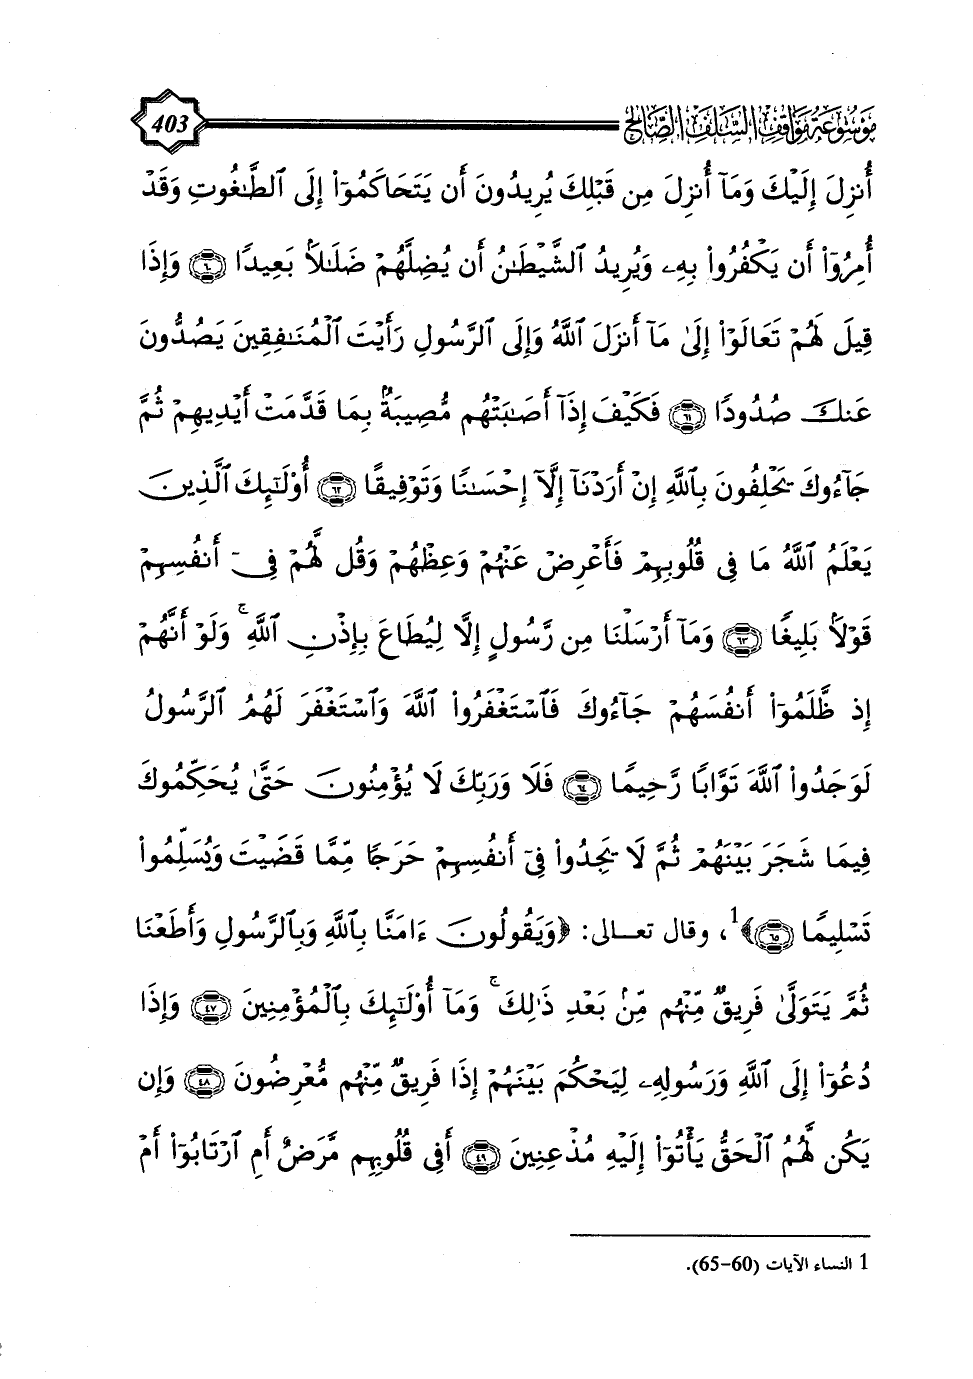 موسوعة مواقف السلف الصالح
403
أُنزِلَ إِلَيْكَ وَمَآ أُنزِلَ مِن قَبْلِكَ يُرِيدُونَ أَن يَتَحَاكَمُوٓا۟ إِلَى ٱلطَّـٰغُوتِ وَقَدْ
أُمِرُوٓا۟ أَن يَكْفُرُوا۟ بِهِۦ وَيُرِيدُ ٱلشَّيْطَـٰنُ أَن يُضِلَّهُمْ ضَلَـٰلًۢا بَعِيدًا ﴿٦٠﴾ وَإِذَا
قِيلَ لَهُمْ تَعَالَوْا۟ إِلَىٰ مَآ أَنزَلَ ٱللَّهُ وَإِلَى ٱلرَّسُولِ رَأَيْتَ ٱلْمُنَـٰفِقِينَ يَصُدُّونَ
عَنكَ صُدُودًا ﴿٦١﴾ فَكَيْفَ إِذَآ أَصَـٰبَتْهُم مُّصِيبَةٌۢ بِمَا قَدَّمَتْ أَيْدِيهِمْ ثُمَّ
جَآءُوكَ يَحْلِفُونَ بِٱللَّهِ إِنْ أَرَدْنَآ إِلَّآ إِحْسَـٰنًا وَتَوْفِيقًا ﴿٦٢﴾ أُو۟لَـٰٓئِكَ ٱلَّذِينَ
يَعْلَمُ ٱللَّهُ مَا فِى قُلُوبِهِمْ فَأَعْرِضْ عَنْهُمْ وَعِظْهُمْ وَقُل لَّهُمْ فِىٓ أَنفُسِهِمْ
قَوْلًۢا بَلِيغًا ﴿٦٣﴾ وَمَآ أَرْسَلْنَا مِن رَّسُولٍ إِلَّا لِيُطَاعَ بِإِذْنِ ٱللَّهِ ۚ وَلَوْ أَنَّهُمْ
إِذ ظَّلَمُوٓا۟ أَنفُسَهُمْ جَآءُوكَ فَٱسْتَغْفَرُوا۟ ٱللَّهَ وَٱسْتَغْفَرَ لَهُمُ ٱلرَّسُولُ
لَوَجَدُوا۟ ٱللَّهَ تَوَّابًا رَّحِيمًا ﴿٦٤﴾ فَلَا وَرَبِّكَ لَا يُؤْمِنُونَ حَتَّىٰ يُحَكِّمُوكَ
فِيمَا شَجَرَ بَيْنَهُمْ ثُمَّ لَا يَجِدُوا۟ فِىٓ أَنفُسِهِمْ حَرَجًا مِّمَّا قَضَيْتَ وَيُسَلِّمُوا۟
تَسْلِيمًا ﴿٦٥﴾﴾1، وقال تعـالى: ﴿وَيَقُولُونَ ءَامَنَّا بِٱللَّهِ وَبِٱلرَّسُولِ وَأَطَعْنَا
ثُمَّ يَتَوَلَّىٰ فَرِيقٌ مِّنْهُم مِّنۢ بَعْدِ ذَٰلِكَ ۚ وَمَآ أُو۟لَـٰٓئِكَ بِٱلْمُؤْمِنِينَ ﴿٤٧﴾ وَإِذَا
دُعُوٓا۟ إِلَى ٱللَّهِ وَرَسُولِهِۦ لِيَحْكُمَ بَيْنَهُمْ إِذَا فَرِيقٌ مِّنْهُم مُّعْرِضُونَ ﴿٤٨﴾ وَإِن
يَكُن لَّهُمُ ٱلْحَقُّ يَأْتُوٓا۟ إِلَيْهِ مُذْعِنِينَ ﴿٤٩﴾ أَفِى قُلُوبِهِم مَّرَضٌ أَمِ ٱرْتَابُوٓا۟ أَمْ
1 النساء الآيات (60-65).